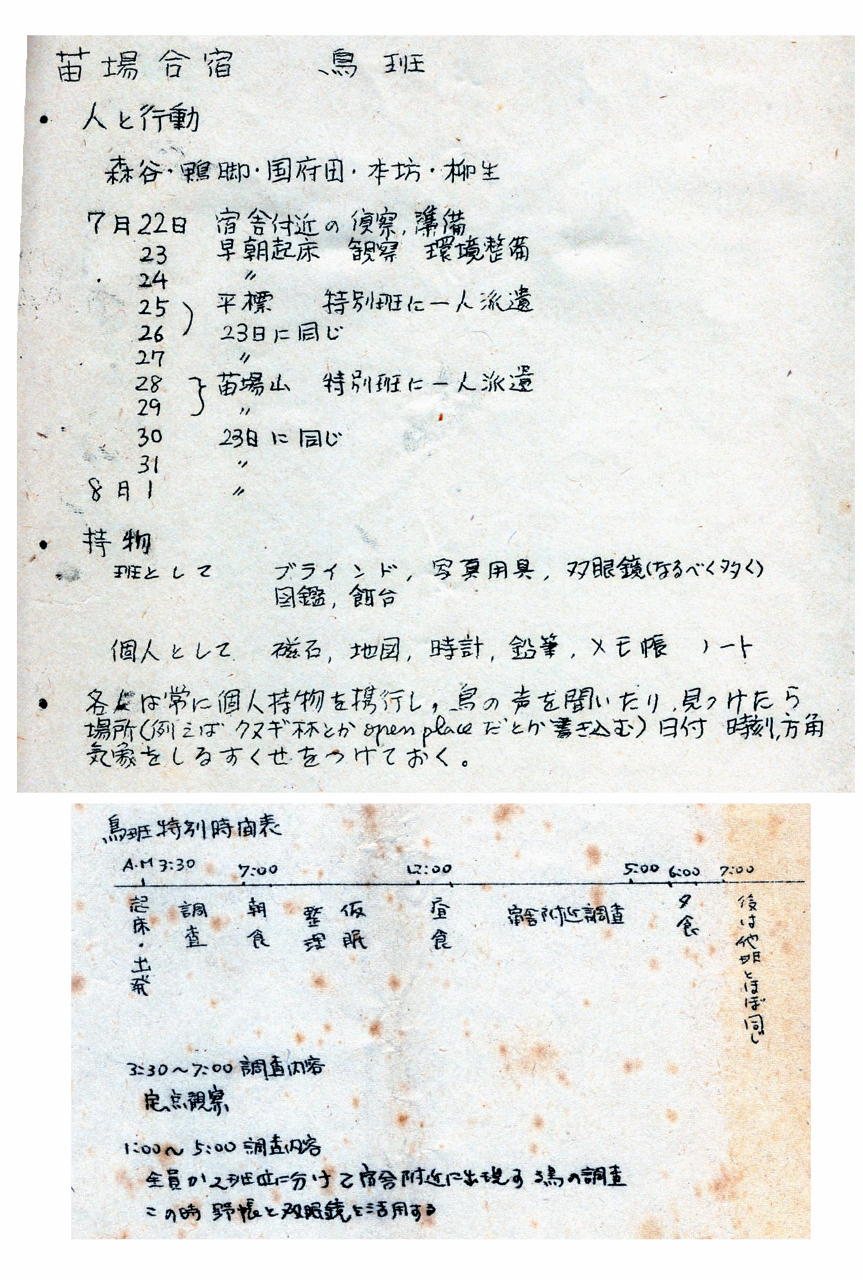 苗場合宿 鳥班
・ 人と行動
森谷・鴨脚・国府田・本坊・柳生
7月22日 宿舎付近の偵察,準備
23 早朝起床 観察 環境整備
24 〃
25 平標 特別班に一人派遣
26 23日に同じ
27 〃
28 苗場山 特別班に一人派遣
29 〃
30 23日に同じ
31 〃
8月1 〃
・ 持物
班として ブラインド, 写真用具, 双眼鏡(なるべく多く)
図鑑, 餌台
個人として 磁石, 地図, 時計, 鉛筆, メモ帳 ノート
・ 各人は常に個人持物を携行し, 鳥の声を聞いたり,見つけたら
場所(例えば クヌギ林とか open place だとか書き込む) 日付 時刻,方角
気象をしるすくせをつけておく。
鳥班特別時間表
A.M 3:30 7:00 12:00 5:00 6:00 7:00
起床・出発
調査
朝食
整理
仮眠
昼食
宿舎附近調査
夕食
後は他班とほぼ同じ
3:30〜7:00 調査内容
定点観察
1:00〜5:00 調査内容
全員が2班位に分けて宿舎附近に出現する鳥の調査
この時 野帳と双眼鏡を活用する